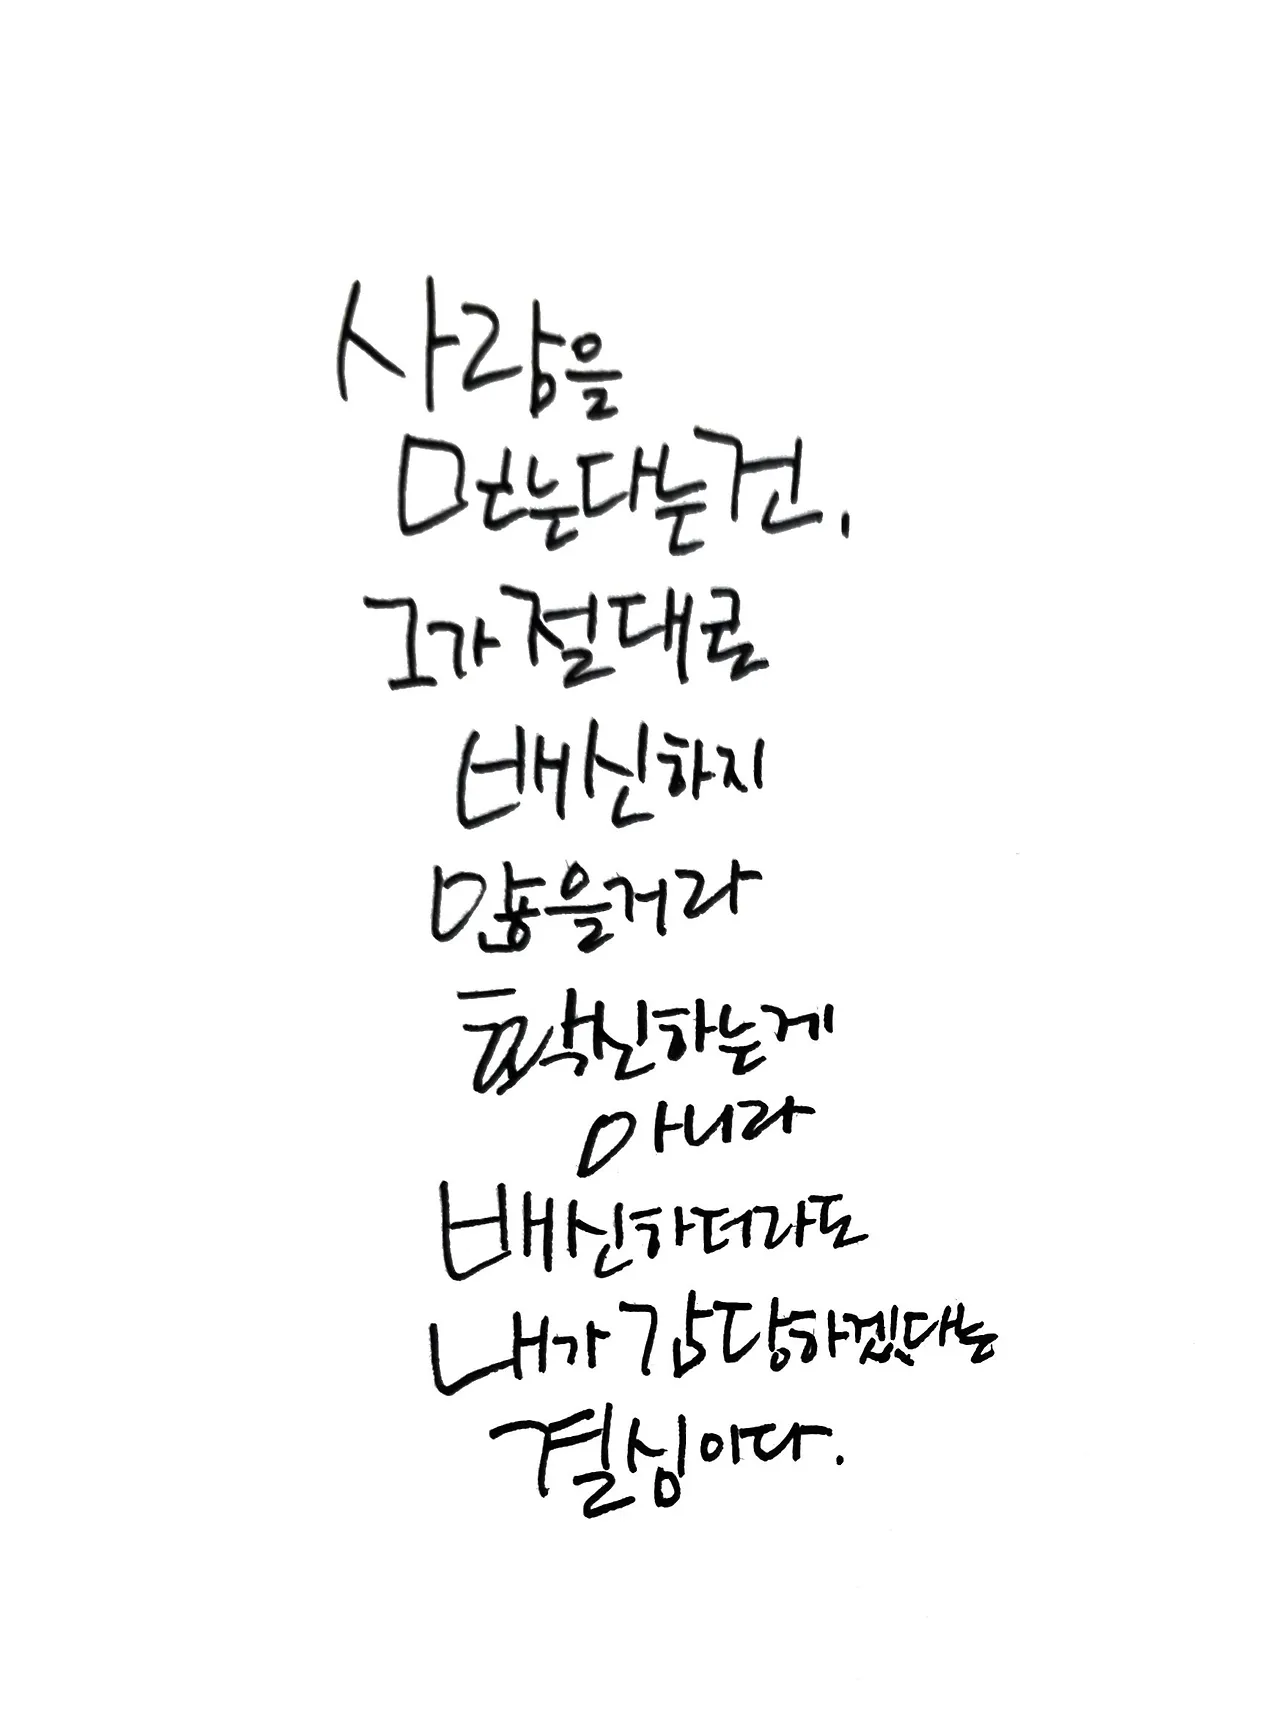 사람을
믿는다는건,
그가 절대로
배신하지
않을거라
확신하는게
아니라
배신하더라도
내가 감당하겠다는
결심이다.